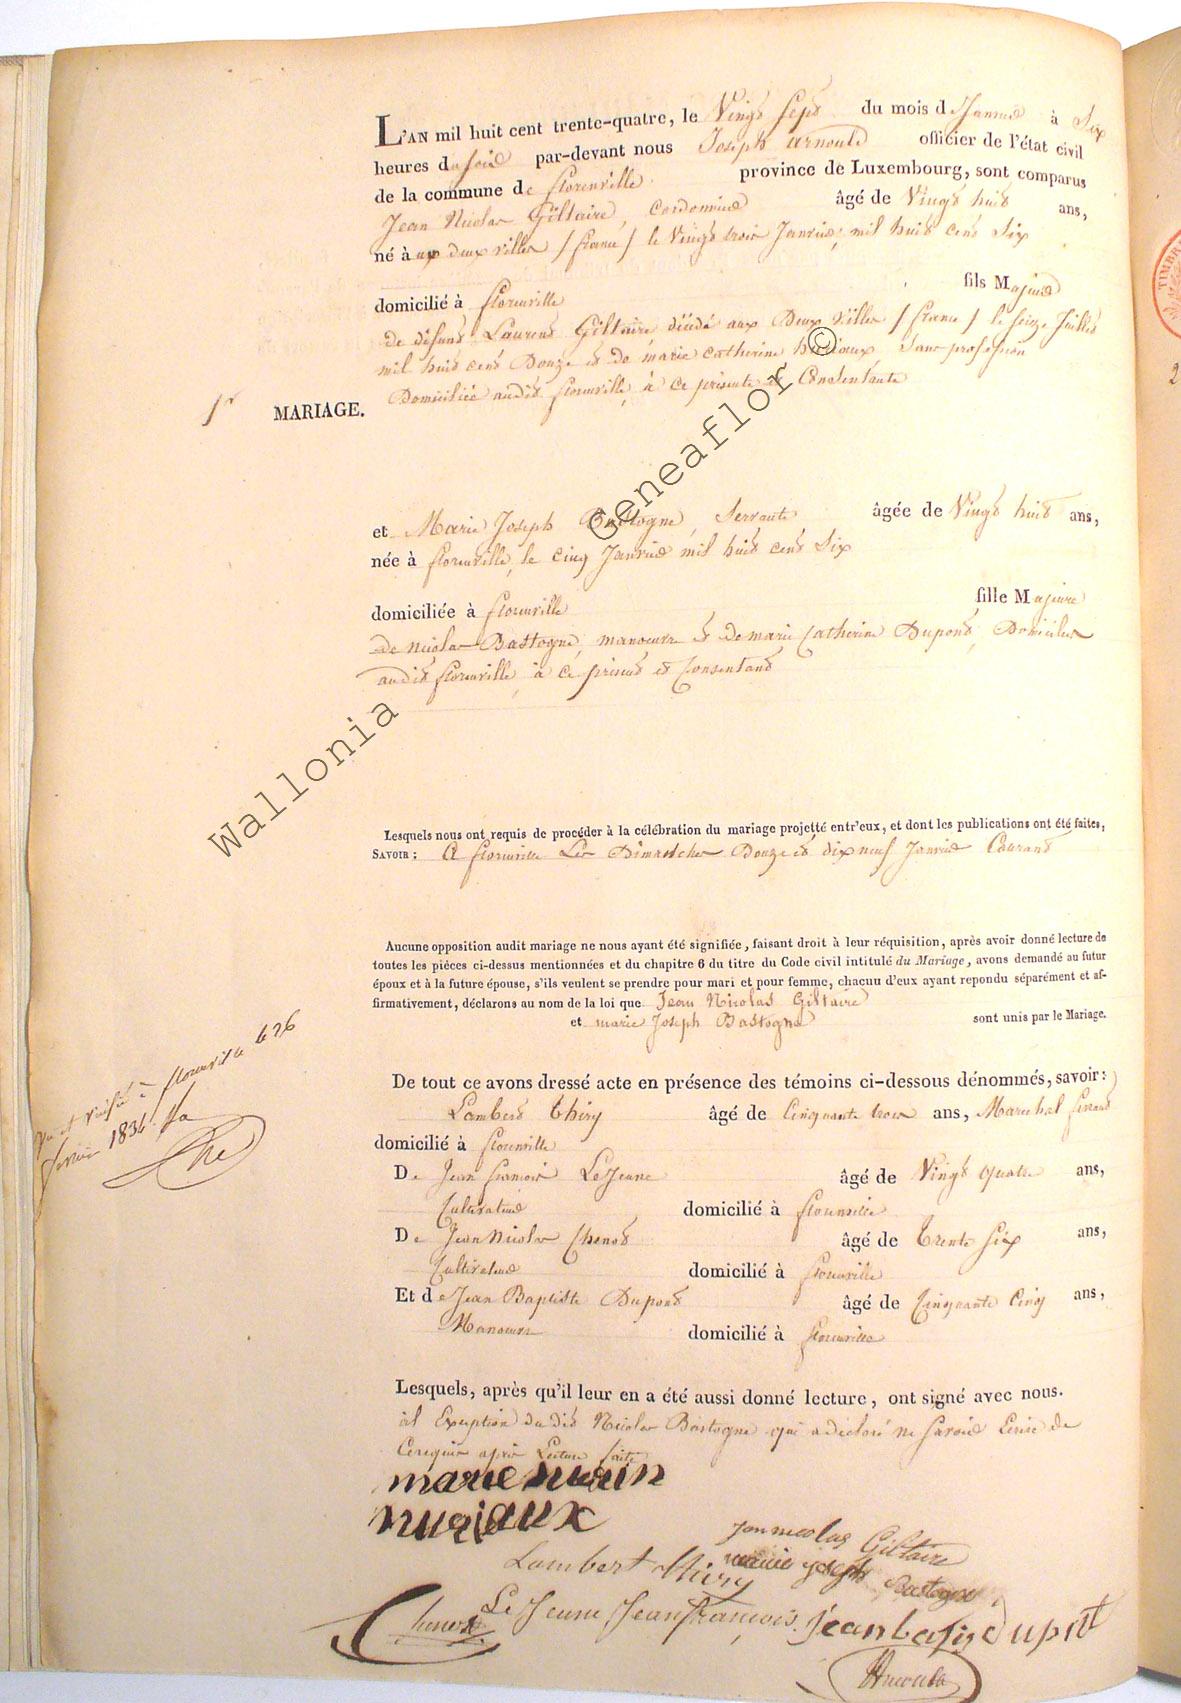 L'AN mil huit cent trente-quatre, le Vingt Sept du mois de Janvier à Six
heures du soir par-devant nous Joseph Arnould officier de l'état civil
de la commune de florenville province de Luxembourg, sont comparus
Jean Nicolas Giltaire, Cordonnier âgé de Vingt huit ans,
né à aux deux villes / france / le Vingt trois Janvier, mil huit cent Six
domicilié à florenville fils Majeur
de défunt Laurent Giltaire décédé aux Deux Villes / france / le seize Juillet
mil huit cent Douze et de marie catherine sans profession
Domiciliée audit florenville, à ce présente et Consentante
1r MARIAGE.
et Marie Joseph Bastogne, Servante âgée de Vingt huit ans,
née à florenville, le cinq Janvier mil huit cent Six
domiciliée à florenville fille Majeure
De nicolas Bastogne, manoeuvre et de marie Catherine Dupont, Domiciliés
audit florenville, à ce présent et Consentant
Lesquels nous ont requis de procéder à la célébration du mariage projetté entr'eux, et dont les publications ont été faites,
SAVOIR : A florenville Les Dimanches Douze et dix neuf Janvier Courant
Aucune opposition audit mariage ne nous ayant été signifiée, faisant droit à leur réquisition, après avoir donné lecture de
toutes les pièces ci-dessus mentionnées et du chapitre 6 du titre du Code civil intitulé du Mariage, avons demandé au futur
époux et à la future épouse, s'ils veulent se prendre pour mari et pour femme, chacun d'eux ayant repondu séparément et af-
firmativement, déclarons au nom de la loi que Jean Nicolas Giltaire
et marie Joseph Bastogne sont unis par le Mariage.
De tout ce avons dressé acte en présence des témoins ci-dessous dénommés, savoir :
Lambert thiry âgé de Cinquante trois ans, Marechal ferrant
domicilié à florenville
De Jean francois LeJeune âgé de Vingt quatre ans,
Cultivateur domicilié à florenville
De Jean Nicolas Chenot âgé de Trente Six ans,
Cultivateur domicilié à florenville
Et de Jean Baptiste Dupont âgé de Cinquante Cinq ans,
Manoeuvre domicilié à florenville
Lesquels, après qu'il leur en a été aussi donné lecture, ont signé avec nous.
à l'Exception dudit Nicolas Bastogne qui a déclaré ne savoir Ecrire de
Cerequis après Lecture faite
Vu et vérifié à florenville le 26
février 1834
marie
jean nicolas Giltaire
marie joseph Bastogne
Lambert thiry
Le Jeune Jean françois
Chenot
jean batis dupont
Wallonia Geneaflor ©
TIMBR
2